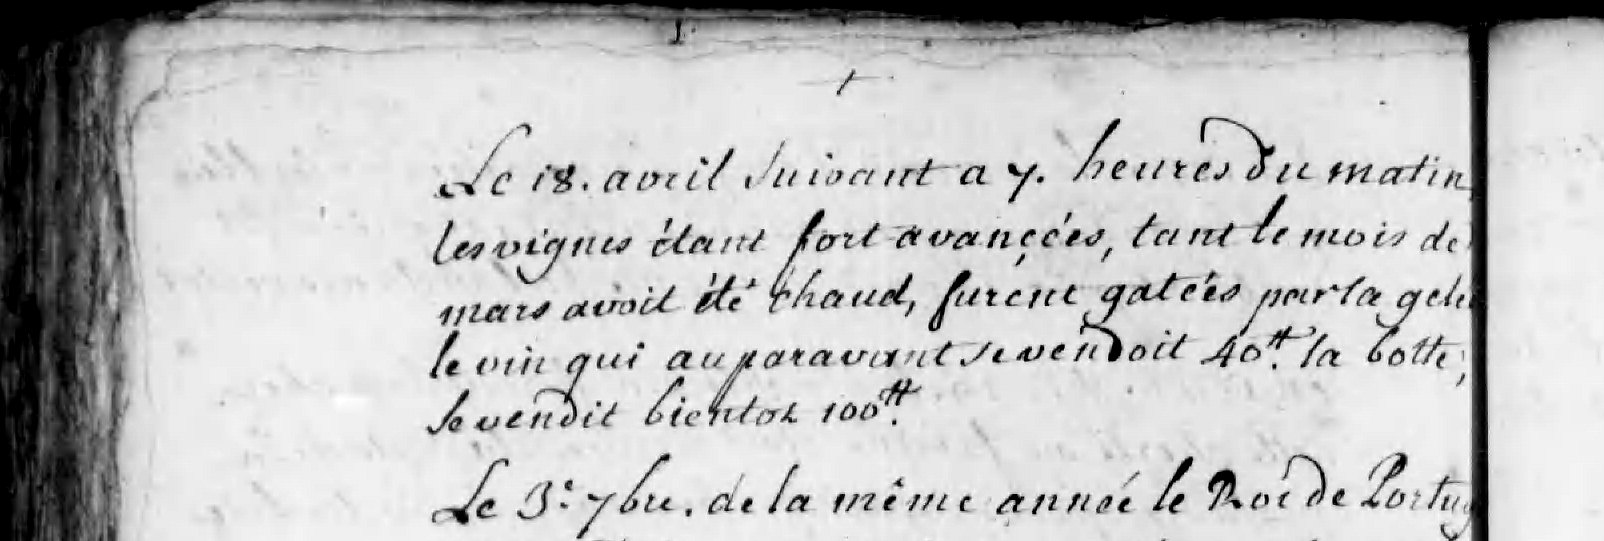 Le 18. avril suivant a 7. heures du matin
les vignes étant fort avancées, tant le mois de
mars avoit été chaud, furent gatées par la gelé
le vin qui auparavant se vendoit 40ᵗᵗ. la botte,
se vendit bientot 100ᵗᵗ.
Le 3.e 7bre. de la même année le Roi de Portug